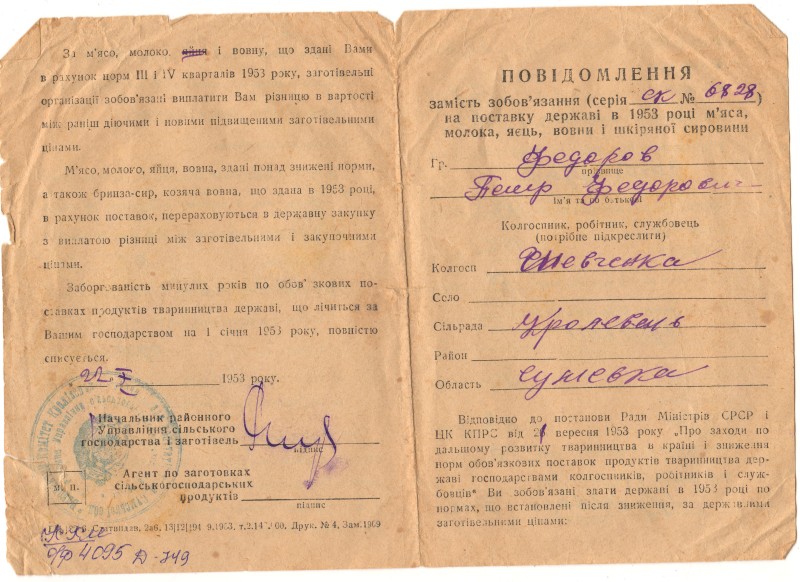 За м'ясо, молоко, яйця і вовну, що здані Вами
в рахунок норм III і IV кварталів 1953 року, заготівельні
організації зобов'язані виплатити Вам різницю в вартості
між раніш діючими і новими підвищеними заготівельними
цінами.
М'ясо, молоко, яйця, вовна, здані понад знижені норми,
а також бринза-сир, козяча вовна, що здана в 1953 році,
в рахунок поставок, перераховуються в державну закупку
з виплатою різниці між заготівельними і закупочними
цінами.
Заборгованість минулих років по обов'язкових по-
ставках продуктів тваринництва державі, що лічиться за
Вашим господарством на 1 січня 1953 року, повністю
списується.
22/X 1953 року.
Начальник районного
Управління сільського
господарства і заготівель
підпис
Агент по заготовках
сільськогосподарських
продуктів
м. п.
підпис
9.1953, Друк. № 4, Зам. 1909
4095 Д-749
ПОВІДОМЛЕННЯ
замість зобов'язання (серія СК № 6828)
на поставку державі в 1953 році м'яса,
молока, яєць, вовни і шкіряної сировини
Гр. Федоров
прізвище
Петр Федорович
ім'я та по батькові
Колгоспник, робітник, службовець
(потрібне підкреслити)
Колгосп Шевченка
Село
Сільрада Кролевець
Район
Область Сумська
Відповідно до постанови Ради Міністрів СРСР і
ЦК КПРС від 26 вересня 1953 року "Про заходи по
дальшому розвитку тваринництва в країні і зниження
норм обов'язкових поставок продуктів тваринництва дер-
жаві господарствами колгоспників, робітників і служ-
бовців" Ви зобов'язані здати державі в 1953 році по
нормах, що встановлені після зниження, за державними
заготівельними цінами: